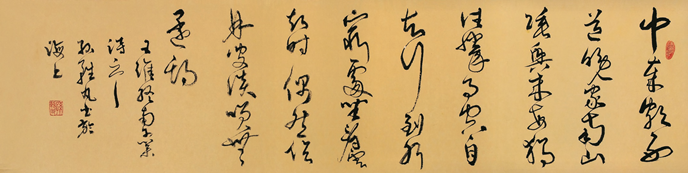 中歲頗好
道晚家南山
陲興來每獨
往勝事空自
知行到水
窮處坐看雲
起時偶然值
林叟談笑無
還期
王維終南別業
詩
孫書於
海上